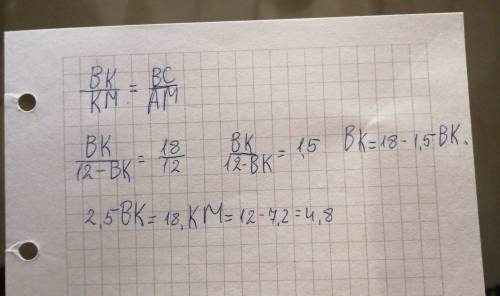 BK/KM = BC/AM
BK/12-BK = 18/12 BK/12-BK = 1,5 BK=18-1,5BK.
2,5BK=18, KM=12-7,2=4,8